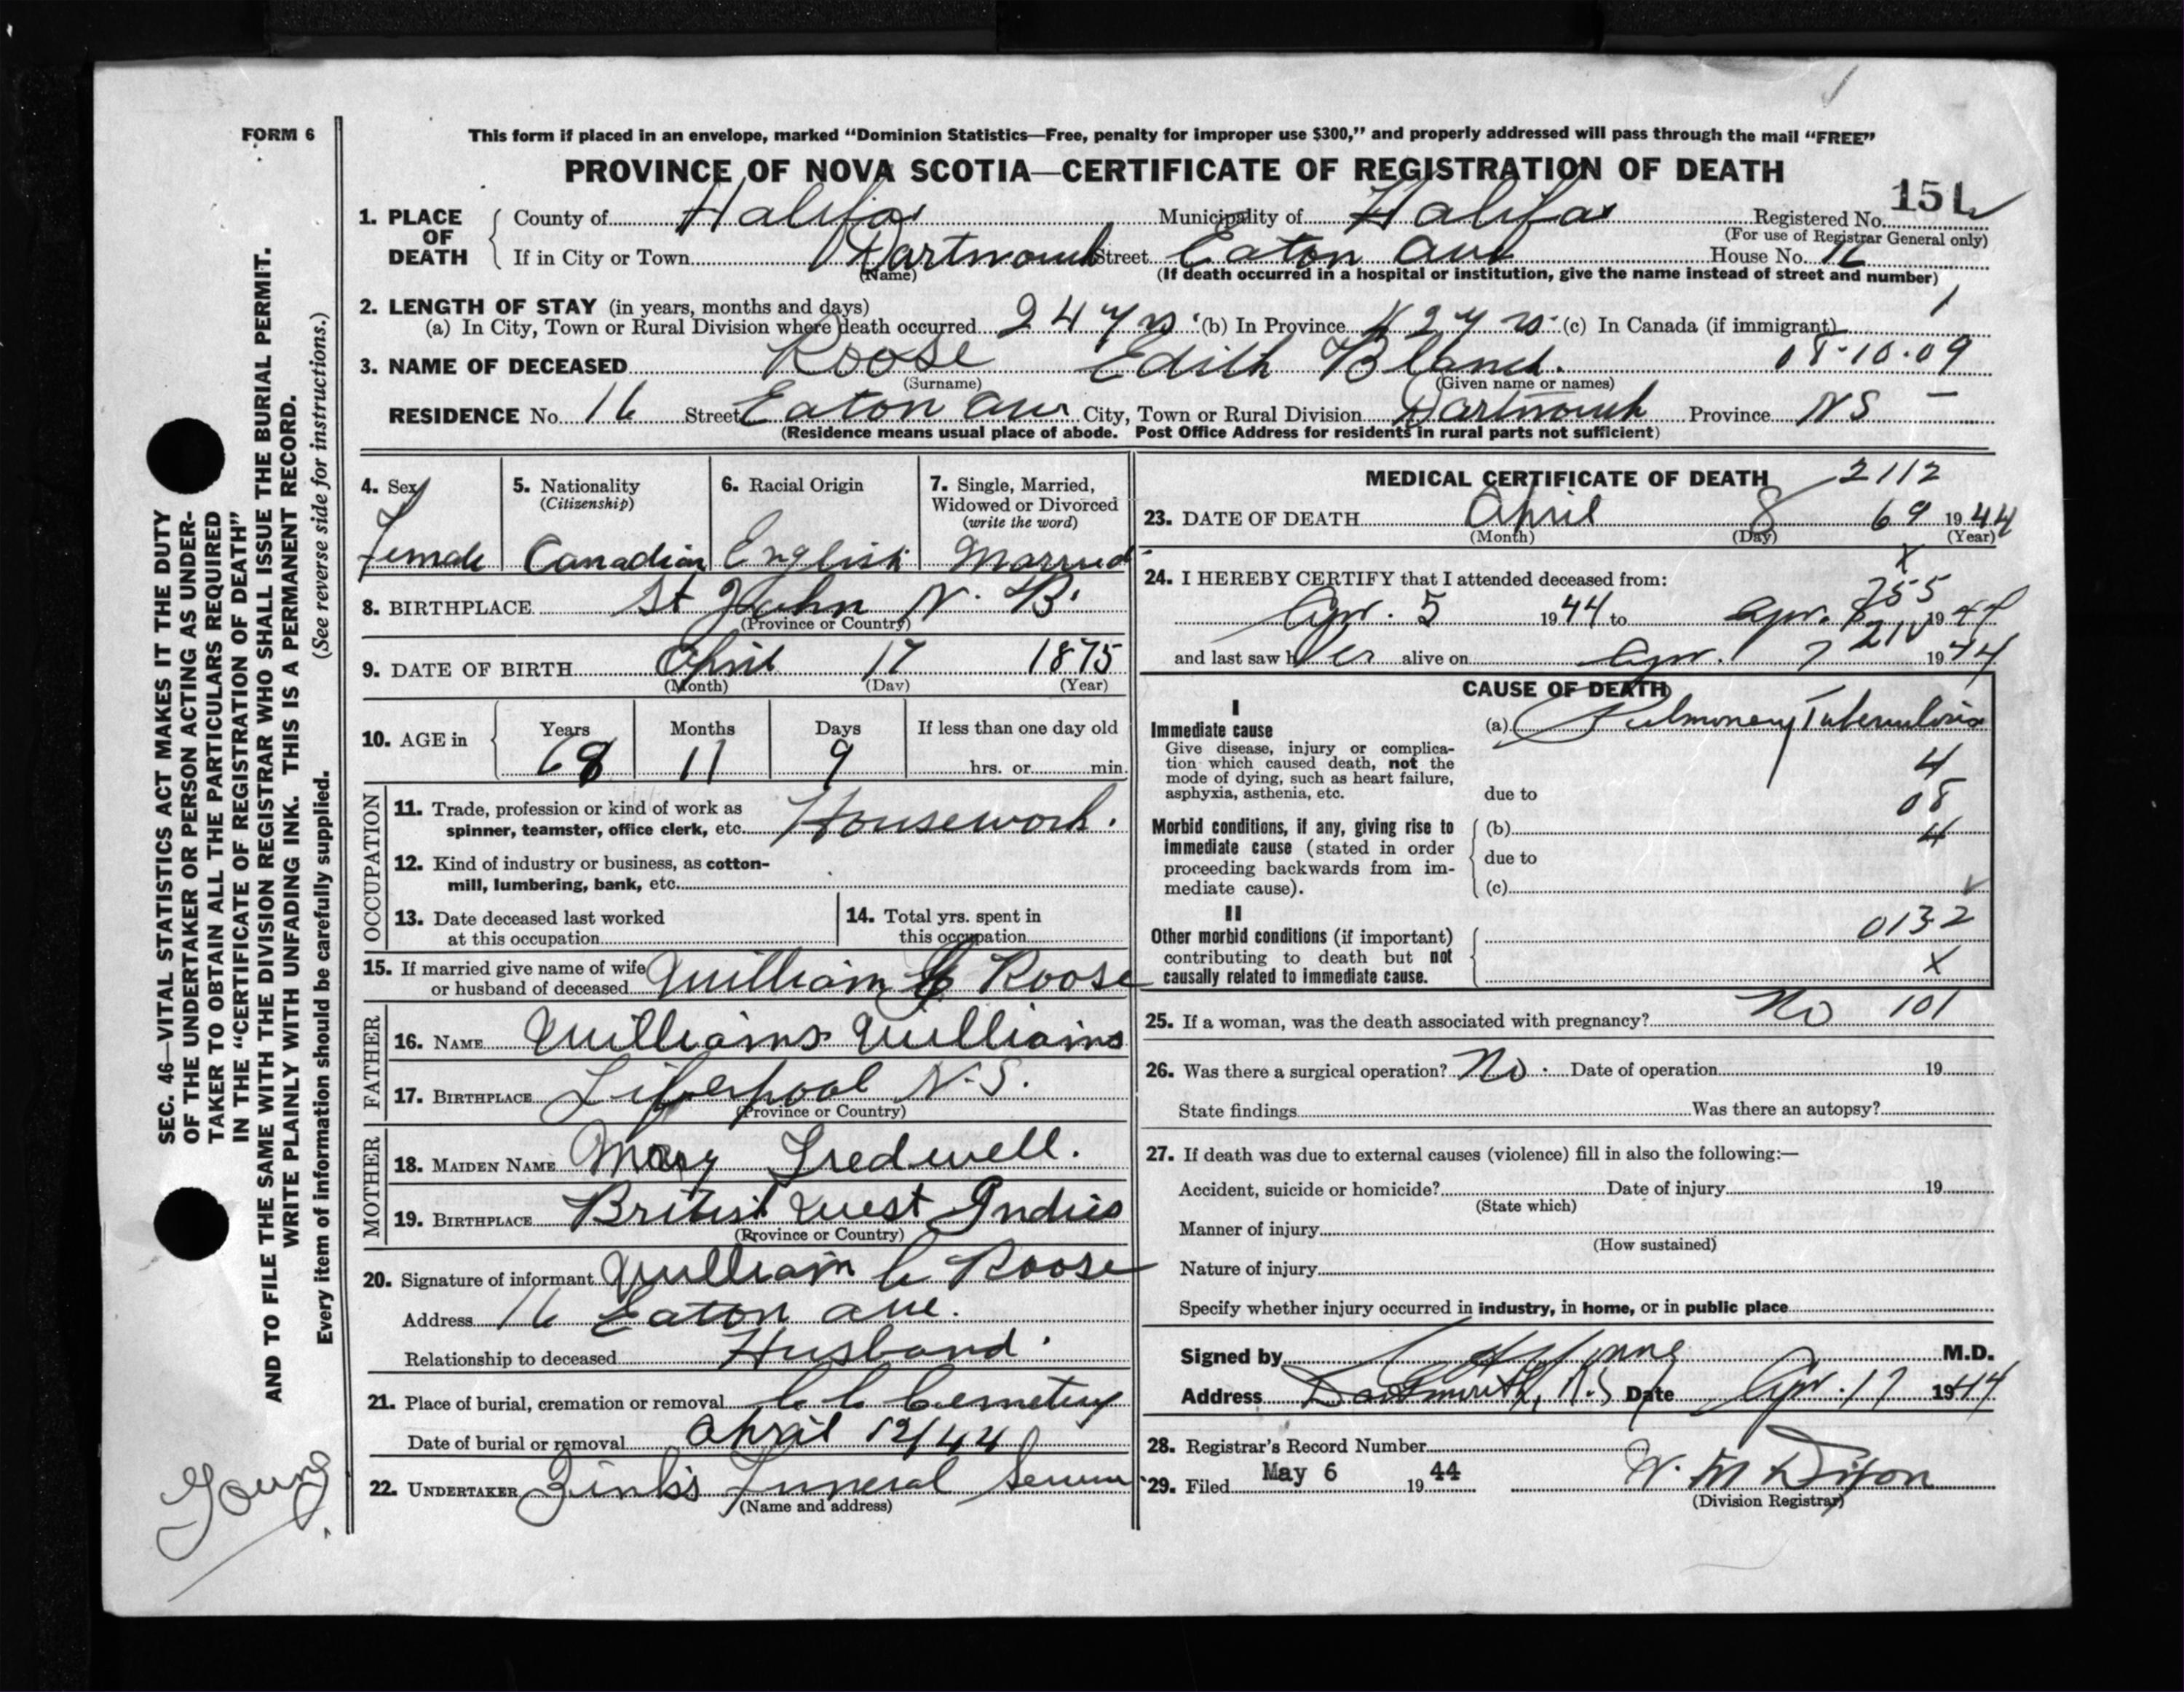 FORM 6
This form if placed in an envelope, marked “Dominion Statistics—Free, penalty for improper use $300,” and properly addressed will pass through the mail “FREE”
PROVINCE OF NOVA SCOTIA—CERTIFICATE OF REGISTRATION OF DEATH
1. PLACE OF DEATH County of Halifax Municipality of Halifax Registered No. 151
(For use of Registrar General only)
If in City or Town Dartmouth Street Eaton Ave House No. 16
(Name) (If death occurred in a hospital or institution, give the name instead of street and number)
2. LENGTH OF STAY (in years, months and days) 1
(a) In City, Town or Rural Division where death occurred 24 yrs. (b) In Province 42 yrs. (c) In Canada (if immigrant)
3. NAME OF DECEASED Roose Edith Blanch. 08-10-09
(Surname) (Given name or names)
RESIDENCE No. 16 Street Eaton Ave City, Town or Rural Division Dartmouth Province NS
(Residence means usual place of abode. Post Office Address for residents in rural parts not sufficient)
4. Sex Female
5. Nationality (Citizenship) Canadian
6. Racial Origin English
7. Single, Married, Widowed or Divorced (write the word) Married
8. BIRTHPLACE St John N. B.
(Province or Country)
9. DATE OF BIRTH April 17 1875
(Month) (Day) (Year)
10. AGE in Years 68 Months 11 Days 9 If less than one day old hrs. or min.
OCCUPATION
11. Trade, profession or kind of work as
spinner, teamster, office clerk, etc. Housework.
12. Kind of industry or business, as cotton-
mill, lumbering, bank, etc.
13. Date deceased last worked
at this occupation
14. Total yrs. spent in
this occupation
15. If married give name of wife
or husband of deceased William C Roose
FATHER
16. NAME Williams Williams
17. BIRTHPLACE Liverpool N.S.
(Province or Country)
MOTHER
18. MAIDEN NAME Mary Tredwell.
19. BIRTHPLACE British West Indies
(Province or Country)
20. Signature of informant William C Roose
Address 16 Eaton Ave.
Relationship to deceased Husband.
21. Place of burial, cremation or removal C. C. Cemetery
Date of burial or removal April 12/44
22. UNDERTAKER Zink's Funeral Service
(Name and address)
MEDICAL CERTIFICATE OF DEATH 2112
23. DATE OF DEATH April 8 69 1944
(Month) (Day) (Year)
X
24. I HEREBY CERTIFY that I attended deceased from: 255
Apr. 5 1944 to Apr. 8 1944
210
and last saw her alive on Apr. 7 1944
CAUSE OF DEATH
I
Immediate cause (a) Pulmonary Tuberculosis
Give disease, injury or complica-
tion which caused death, not the
mode of dying, such as heart failure,
asphyxia, asthenia, etc.
4
due to 08
Morbid conditions, if any, giving rise to
immediate cause (stated in order
proceeding backwards from im-
mediate cause).
(b) 4
due to
(c)
II
Other morbid conditions (if important)
contributing to death but not
causally related to immediate cause.
0132
X
25. If a woman, was the death associated with pregnancy? No 101
26. Was there a surgical operation? No. Date of operation 19
State findings Was there an autopsy?
27. If death was due to external causes (violence) fill in also the following:—
Accident, suicide or homicide? Date of injury 19
(State which)
Manner of injury
(How sustained)
Nature of injury
Specify whether injury occurred in industry, in home, or in public place
Signed by Young M.D.
Address Dartmouth, N.S Date Apr. 17 1944
28. Registrar’s Record Number
29. Filed May 6 19 44 W. M Dixon
(Division Registrar)
SEC. 46—VITAL STATISTICS ACT MAKES IT THE DUTY
OF THE UNDERTAKER OR PERSON ACTING AS UNDER-
TAKER TO OBTAIN ALL THE PARTICULARS REQUIRED
IN THE “CERTIFICATE OF REGISTRATION OF DEATH”
AND TO FILE THE SAME WITH THE DIVISION REGISTRAR WHO SHALL ISSUE THE BURIAL PERMIT.
WRITE PLAINLY WITH UNFADING INK. THIS IS A PERMANENT RECORD.
Every item of information should be carefully supplied. (See reverse side for instructions.)
Young